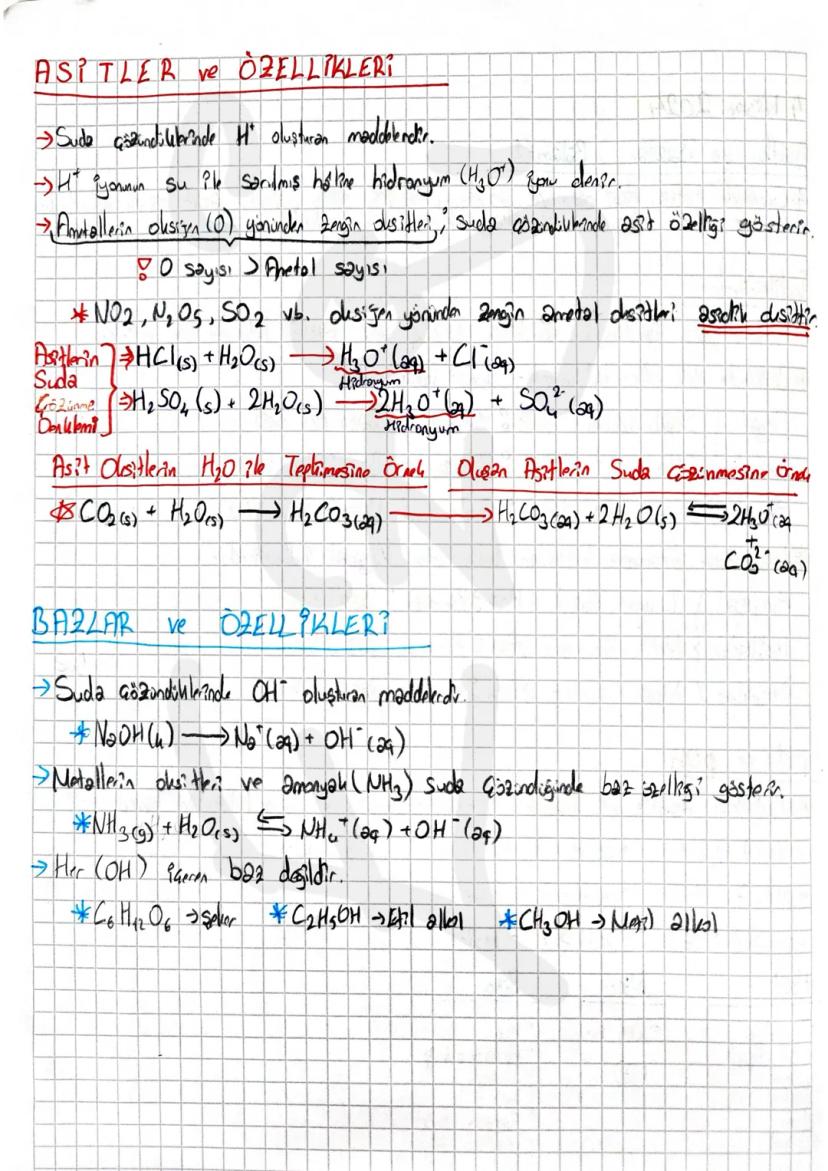 ASİTLER ve ÖZELLİKLERİ
→ Suda çözündüklerinde H⁺ oluşturan maddelerdir.
→ H⁺ iyonunun su ile sarılmış haline hidronyum (H₃O⁺) iyonu denir.
→ Ametallerin oksijen (O) yönünden zengin oksitleri, suda çözündüklerinde asit özelliği gösterir.
! O sayısı > Ametal sayısı
* NO2, N₂O5, SO2 vb. oksijen yönünden zengin ametal oksitleri asidik oksittir.
Asitlerin Suda Çözünme Denklemi
⇒ HCl(s) + H₂O(s) → H₃O⁺(aq) + Cl⁻(aq)
Hidronyum
⇒ H₂SO₄(s) + 2H₂O(s) → 2H₃O⁺(aq) + SO₄²⁻(aq)
Hidronyum
Asit Oksitlerin H₂O ile Tepkimesine Örnek Oluşan Asitlerin Suda Çözünmesine Örnek
* CO₂(s) + H₂O(s) → H₂CO₃(aq) → H₂CO₃(aq) + 2H₂O(s) ⇌ 2H₃O⁺(aq
+
CO₃²⁻(aq)
BAZLAR ve ÖZELLİKLERİ
→ Suda çözündüklerinde OH⁻ oluşturan maddelerdir.
* NaOH(k) → Na⁺(aq) + OH⁻(aq)
→ Metallerin oksitleri ve amonyak (NH₃) suda çözündüğünde baz özelliği gösterir.
* NH₃(g) + H₂O(s) ⇌ NH₄⁺(aq) + OH⁻(aq)
→ Her (OH) içeren baz değildir.
* C₆H₁₂O₆ → şeker * C₂H₅OH → Etil alkol * CH₃OH → Metil alkol